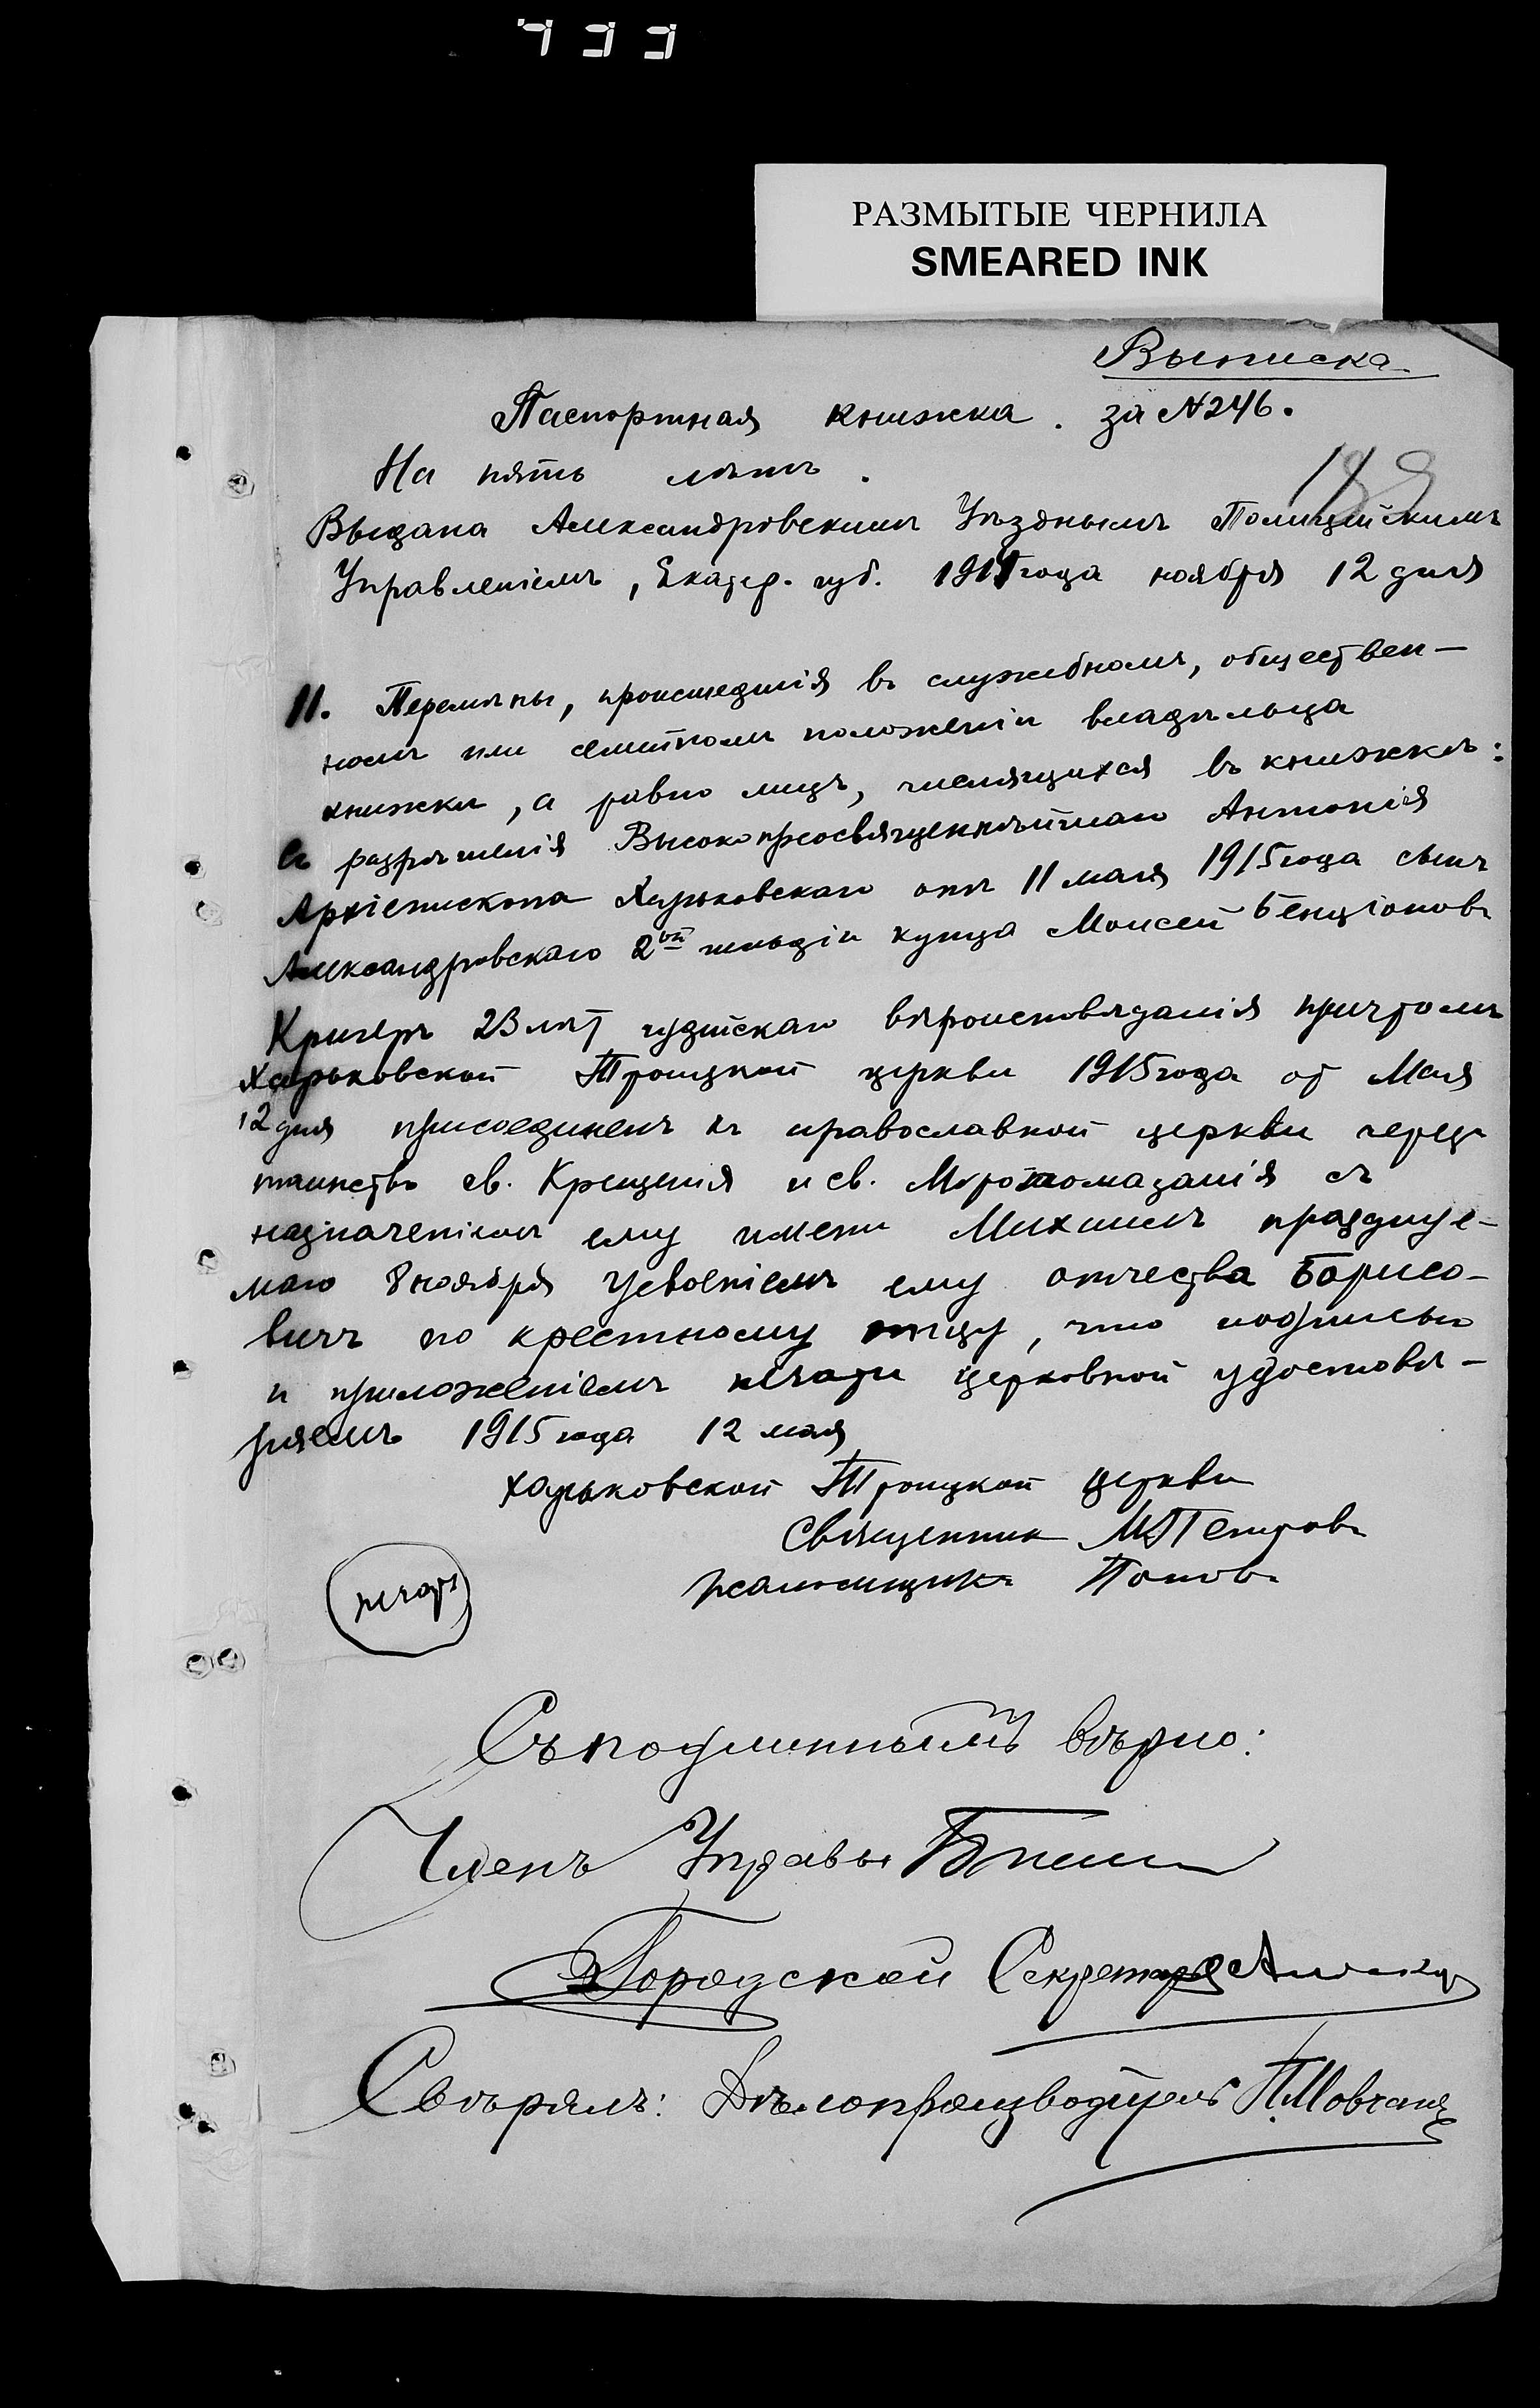 РАЗМЫТЫЕ ЧЕРНИЛА
SMEARED INK
Выписка
Паспортная книжка. за №246.
На пять лѣтъ.
Выдана Александровскимъ Уѣзднымъ Полицейскимъ
Управленіемъ, Екатер. губ. 1914 года ноября 12 дня
11. Перемѣны, происшедшія въ служебномъ, обществен-
номъ или семейномъ положеніи владѣльца
книжки, а равно лицъ, числящихся въ книжкѣ:
Съ разрѣшенія Высокопреосвященнѣйшаго Антонія
Архіепископа Харьковскаго отъ 11 мая 1915 года сынъ
Александровскаго 2ой гильдіи купца Моисей Бенціоновъ
Кригеръ 23 лѣт іудейскаго вѣроисповѣданія причтомъ
Харьковской Троицкой церкви 1915 года от Мая
12 дня присоединенъ къ православной церкви чрезъ
таинство св. Крещенія и св. Миропомазанія съ
назначеніемъ ему имени Михаилъ празднуе-
маго 8 ноября усвоеніемъ ему отчества Борисо-
вичъ по крестному отцу, что подписью
и приложеніемъ печати церковной удостовѣ-
ряемъ 1915 года 12 мая
Харьковской Троицкой церкви
Священник М Петровъ
Псаломщикъ Поповъ
печать
Съ подлиннымъ вѣрно:
Членъ Управы
Городской Секретарь
Свѣрялъ: Дѣлопроизводитель П. Мовчанъ